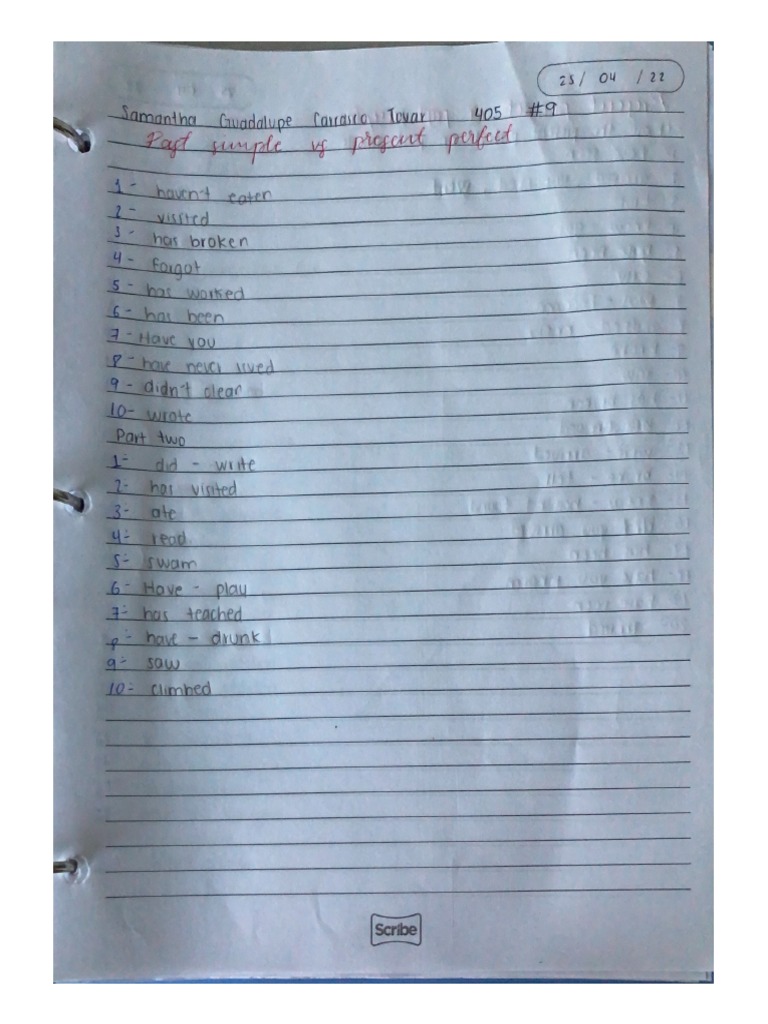 25/ 04 /22
Samantha Guadalupe Carrasco Tovar 405 #9
Past simple vs present perfect
1- haven't eaten
2- visited
3- has broken
4- forgot
5- has worked
6- has been
7- Have you
8- have never
9- didn't clear
10- wrote
Part two
1- did - write
2- has visited
3- ate
4- read
5- swam
6- Have - play
7- has teached
8- have - drunk
9- saw
10- climbed
Scribe